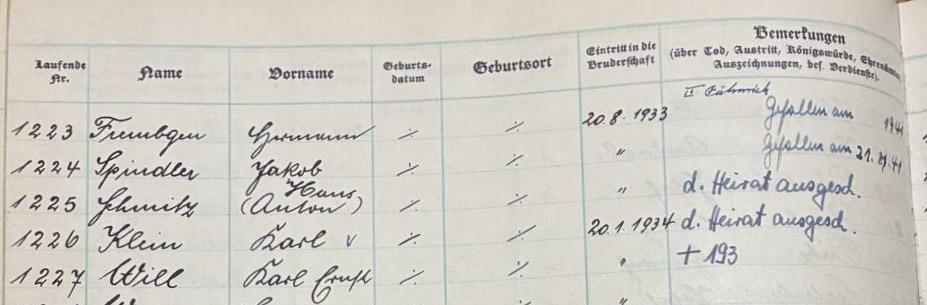 Laufende Nr. Name Vorname Geburts-datum Geburtsort Eintritt in die Bruderschaft Bemerkungen
(über Tod, Austritt, Königswürde, Ehrenämter,
Auszeichnungen, bes. Verdienste).
II. Fähnrich
1223 Hermann ·/. ·/. 20.8.1933 Gefallen am 1941
1224 Spindler Jakob ·/. ·/. " Gefallen am
1225 Schmitz Hans (Anton) ·/. ·/. " d. Heirat ausgesch.
1226 Klein Karl v ·/. ·/. 20.1.1934 d. Heirat ausgesch.
1227 Will Karl Ernst ·/. ·/. " + 193
"